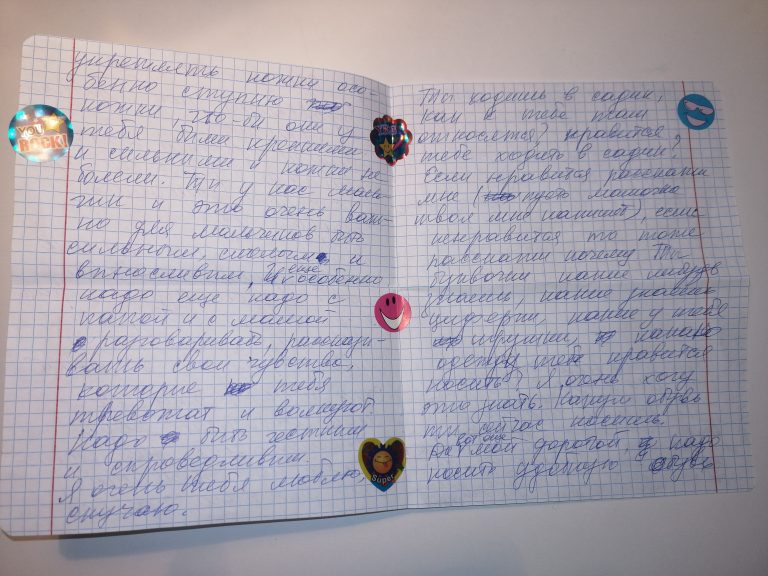 укреплять ножки осо-
бенно ступню
ножки, что-би они у
тебя были крепкими
и сильными и ножки не
болели. Ти у нас маль-
чик и это очень важ-
но для мальчиков быть
сильным, смелым и
выносливим, и еще особенно
надо еще надо с
папой и с мамой
разговаривать, расскази-
вать свои чувства,
которие тебя
тревожат и волнуют.
Надо быть честним
и справедливим.
Я очень тебя люблю,
скучаю.
YOU
ROCK!
Super
Ти ходишь в садик,
как к тебе там
относятся? нравится
тебе ходить в садик?
Если нравится расскажи
мне (пусть мамочка
твоя мне напишет), если
ненравится то тоже
расскажи почему. Ти
буквочки какие нибудь
знаешь, какие знаешь
циферки, какие у тебя
игрушки, какую
одежду тебе нравится
носить? Я очень хочу
это знать. Какую обувь
ти сейчас носишь.
вот еще
мой дорогой, надо
носить удобную обувь